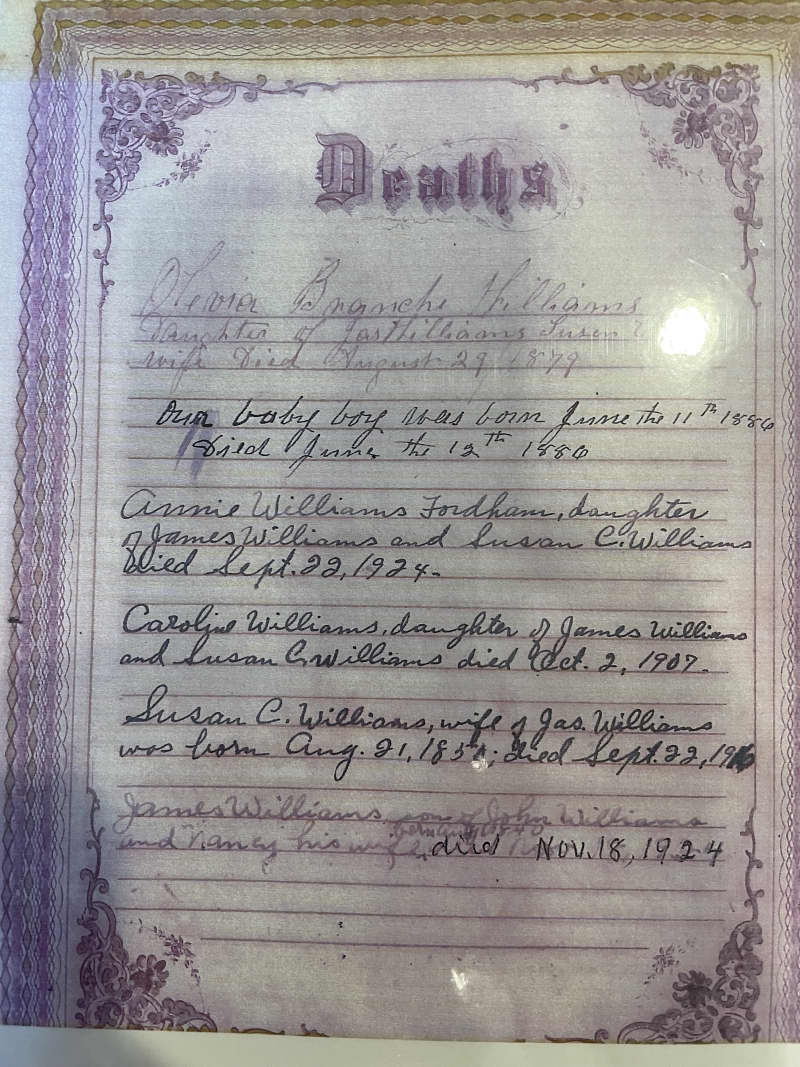 Deaths
Olevia Branche Williams
Daughter of Jas Williams Susan
wife Died August 29 1879
Our baby boy was born June the 11th 1886
Died June the 12th 1886
Annie Williams Fordham, daughter
of James Williams and Susan C. Williams
Died Sept. 22, 1924.
Caroline Williams, daughter of James Williams
and Susan C. Williams died Oct. 2, 1907.
Susan C. Williams, wife of Jas. Williams
was born Aug. 21, died Sept. 22,
James Williams son of John Williams
born
and Nancy his wife, died Nov. 18, 1924